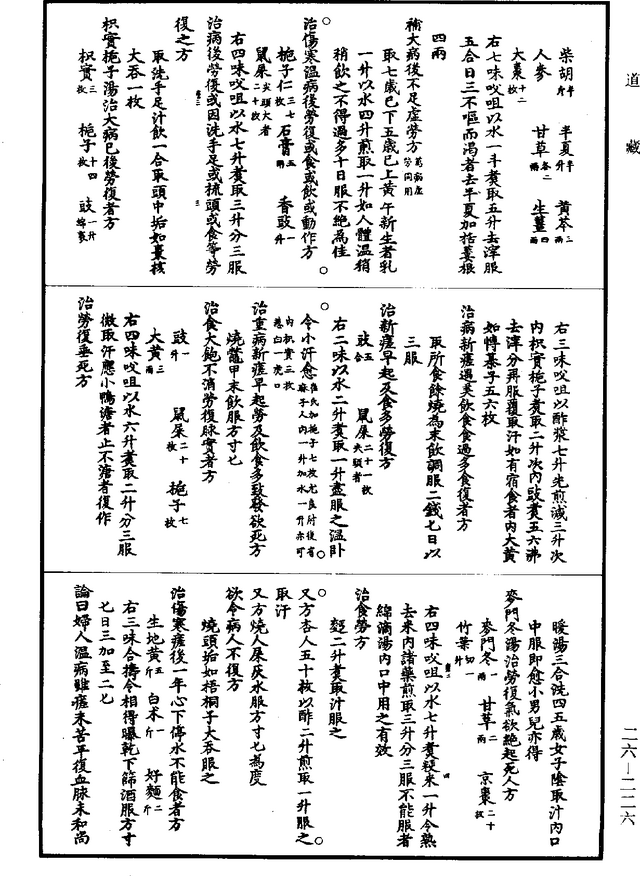 道藏
柴胡半斤 半夏半升 黃芩二兩
人參 甘草各二兩 生薑四兩
大棗十二
右七味㕮咀以水一斗煑取五升去滓服
五合日三不嘔而渴者去半夏加括蔞根
四兩
補大病後不足虛勞方
取七歲已下五歲已上黃牛新生者乳
一升以水四升煎取一升如人體温稍
稍飲之不得過多十日服不絕為佳
治傷寒温病後勞復或食或飲或動作方
梔子仁三七枚 石膏五兩 香豉一升
鼠屎尖頭大者二十枚
右四味㕮咀以水七升煑取三升分三服
治病後勞復或因洗手足或梳頭或食等勞
復之方
取洗手足汁飲一合取頭中垢如棗核
大吞一枚
枳實梔子湯治大病已後勞復者方
枳實三枚 梔子十四枚 豉一升綿裹
右三味㕮咀以酢漿七升先煎減三升次
內枳實梔子煑取二升次內豉煑五六沸
去滓分再服覆取汗如有宿食者內大黃
如博棊子五六枚
治病新瘥遇美飲食食過多食復者方
取所食餘燒為末飲調服二錢七日以
三服
治新瘥早起及食多勞復方
豉五合 鼠屎二十一枚尖頭者
右二味以水二升煑取一升盡服之温卧
令小汗愈崔氏加梔子七枚尤良肘後有麻子人內一升加水一升亦可內枳實三枚葱白一虎口
治重病新瘥早起勞及飲食多致發欲死方
燒鼈甲末飲服方寸匕
治食大飽不消勞復脉實者方
豉一升 鼠屎二十枚 梔子七枚
大黃三兩
右四味㕮咀以水六升煑取二升分三服
微取汗應小鴨溏者止不溏者復作
治勞復垂死方
暖湯三合洗四五歲女子陰取汁內口
中服即愈小男兒亦得
麥門冬湯治勞復氣欲絕起死人方
麥門冬一兩 甘草二兩 京棗二十枚
竹葉切一升
右四味㕮咀以水七升煑稉米一升令熟
去米內諸藥煎取三升分三服不能服者
綿滴湯內口中用之有效
治食勞方
麴二升煑取汁服之
又方杏人五十枚以酢二升煎取一升服之
取汗
又方燒人屎灰水服方寸匕為度
欲令病人不復方
燒頭垢如梧桐子大吞服之
治傷寒瘥後一年心下停水不能食者方
生地黃五斤 白术一斤 好麵二斤
右三味合擣令相得曝乾下篩酒服方寸
匕日三加至二匕
論曰婦人温病雖瘥未若平復血脉未和尚
二六—二二六